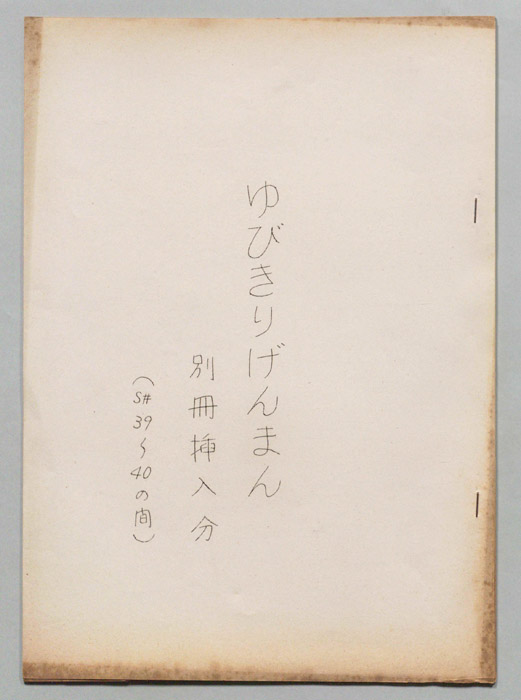 ゆびきりげんまん
別冊挿入分
(S#39〜40の間)